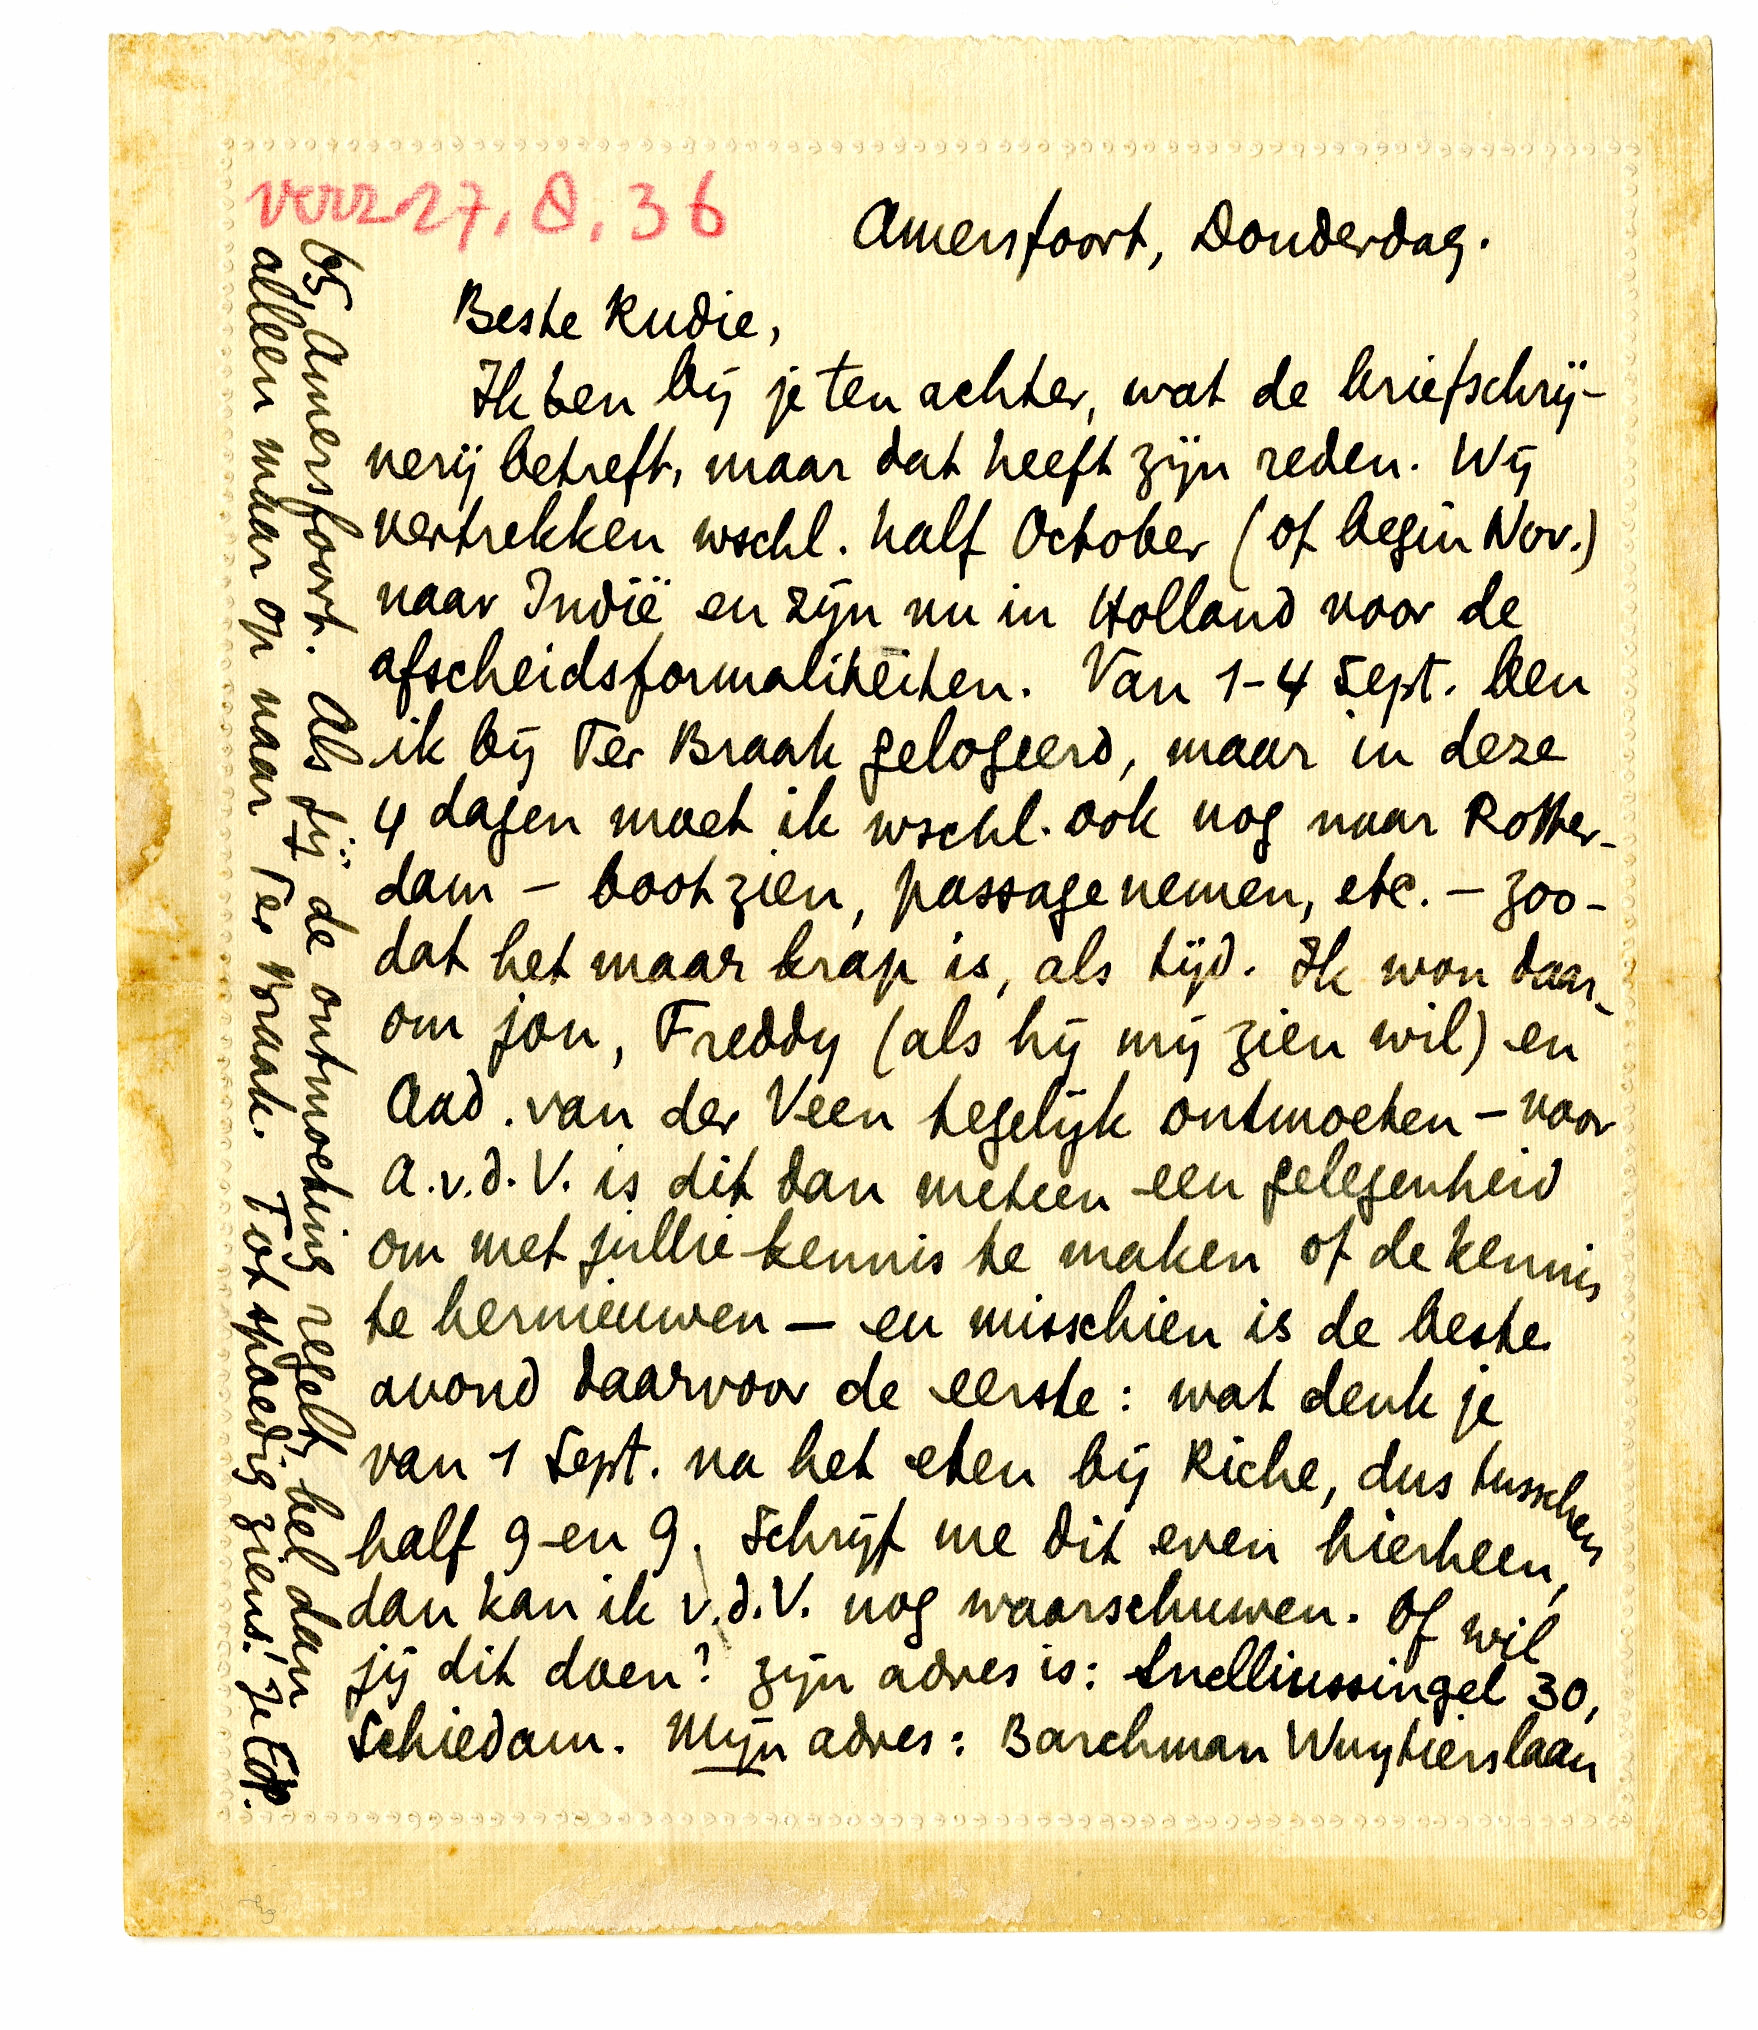 verz 27.8.36
Amersfoort, Donderdag.
Beste Rudie,
Ik ben bij je ten achter, wat de briefschrij-
verij betreft, maar dat heeft zijn reden. Wij
vertrekken wschl. half October (of begin Nov.)
naar Indië en zijn nu in Holland voor de
afscheidsformaliteiten. Van 1-4 Sept. ben
ik bij Ter Braak gelogeerd, maar in deze
4 dagen moet ik wschl. ook nog naar Rotter-
dam – boot zien, passage nemen, etc. – zoo-
dat het maar krap is, als tijd. Ik wou daar-
om jou, Freddy (als hij mij zien wil) en
Aad. van der Veen tegelijk ontmoeten – voor
A.v.d.V. is dit dan meteen een gelegenheid
om met jullie kennis te maken of de kennis
te hernieuwen – en misschien is de beste
avond daarvoor de eerste: wat denk je
van 1 Sept. na het eten bij Riche, dus tusschen
half 9 en 9. Schrijf me dit even hierheen,
dan kan ik v.d.V. nog waarschuwen. Of wil
jij dit doen? Zijn adres is: Snelliussingel 30,
Schiedam. Mijn adres: Barchman Wuytierslaan
65, Amersfoort. Als jij de ontmoeting regelt, bel dan
alleen maar op naar Ter Braak. Tot spoedig ziens! Je EdP.